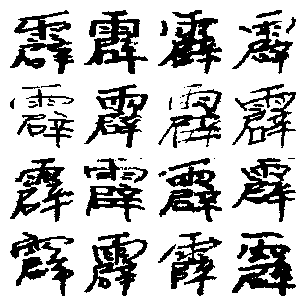 霹霹霹霹
霹霹霹霹
霹霹霹霹
霹霹霹霹